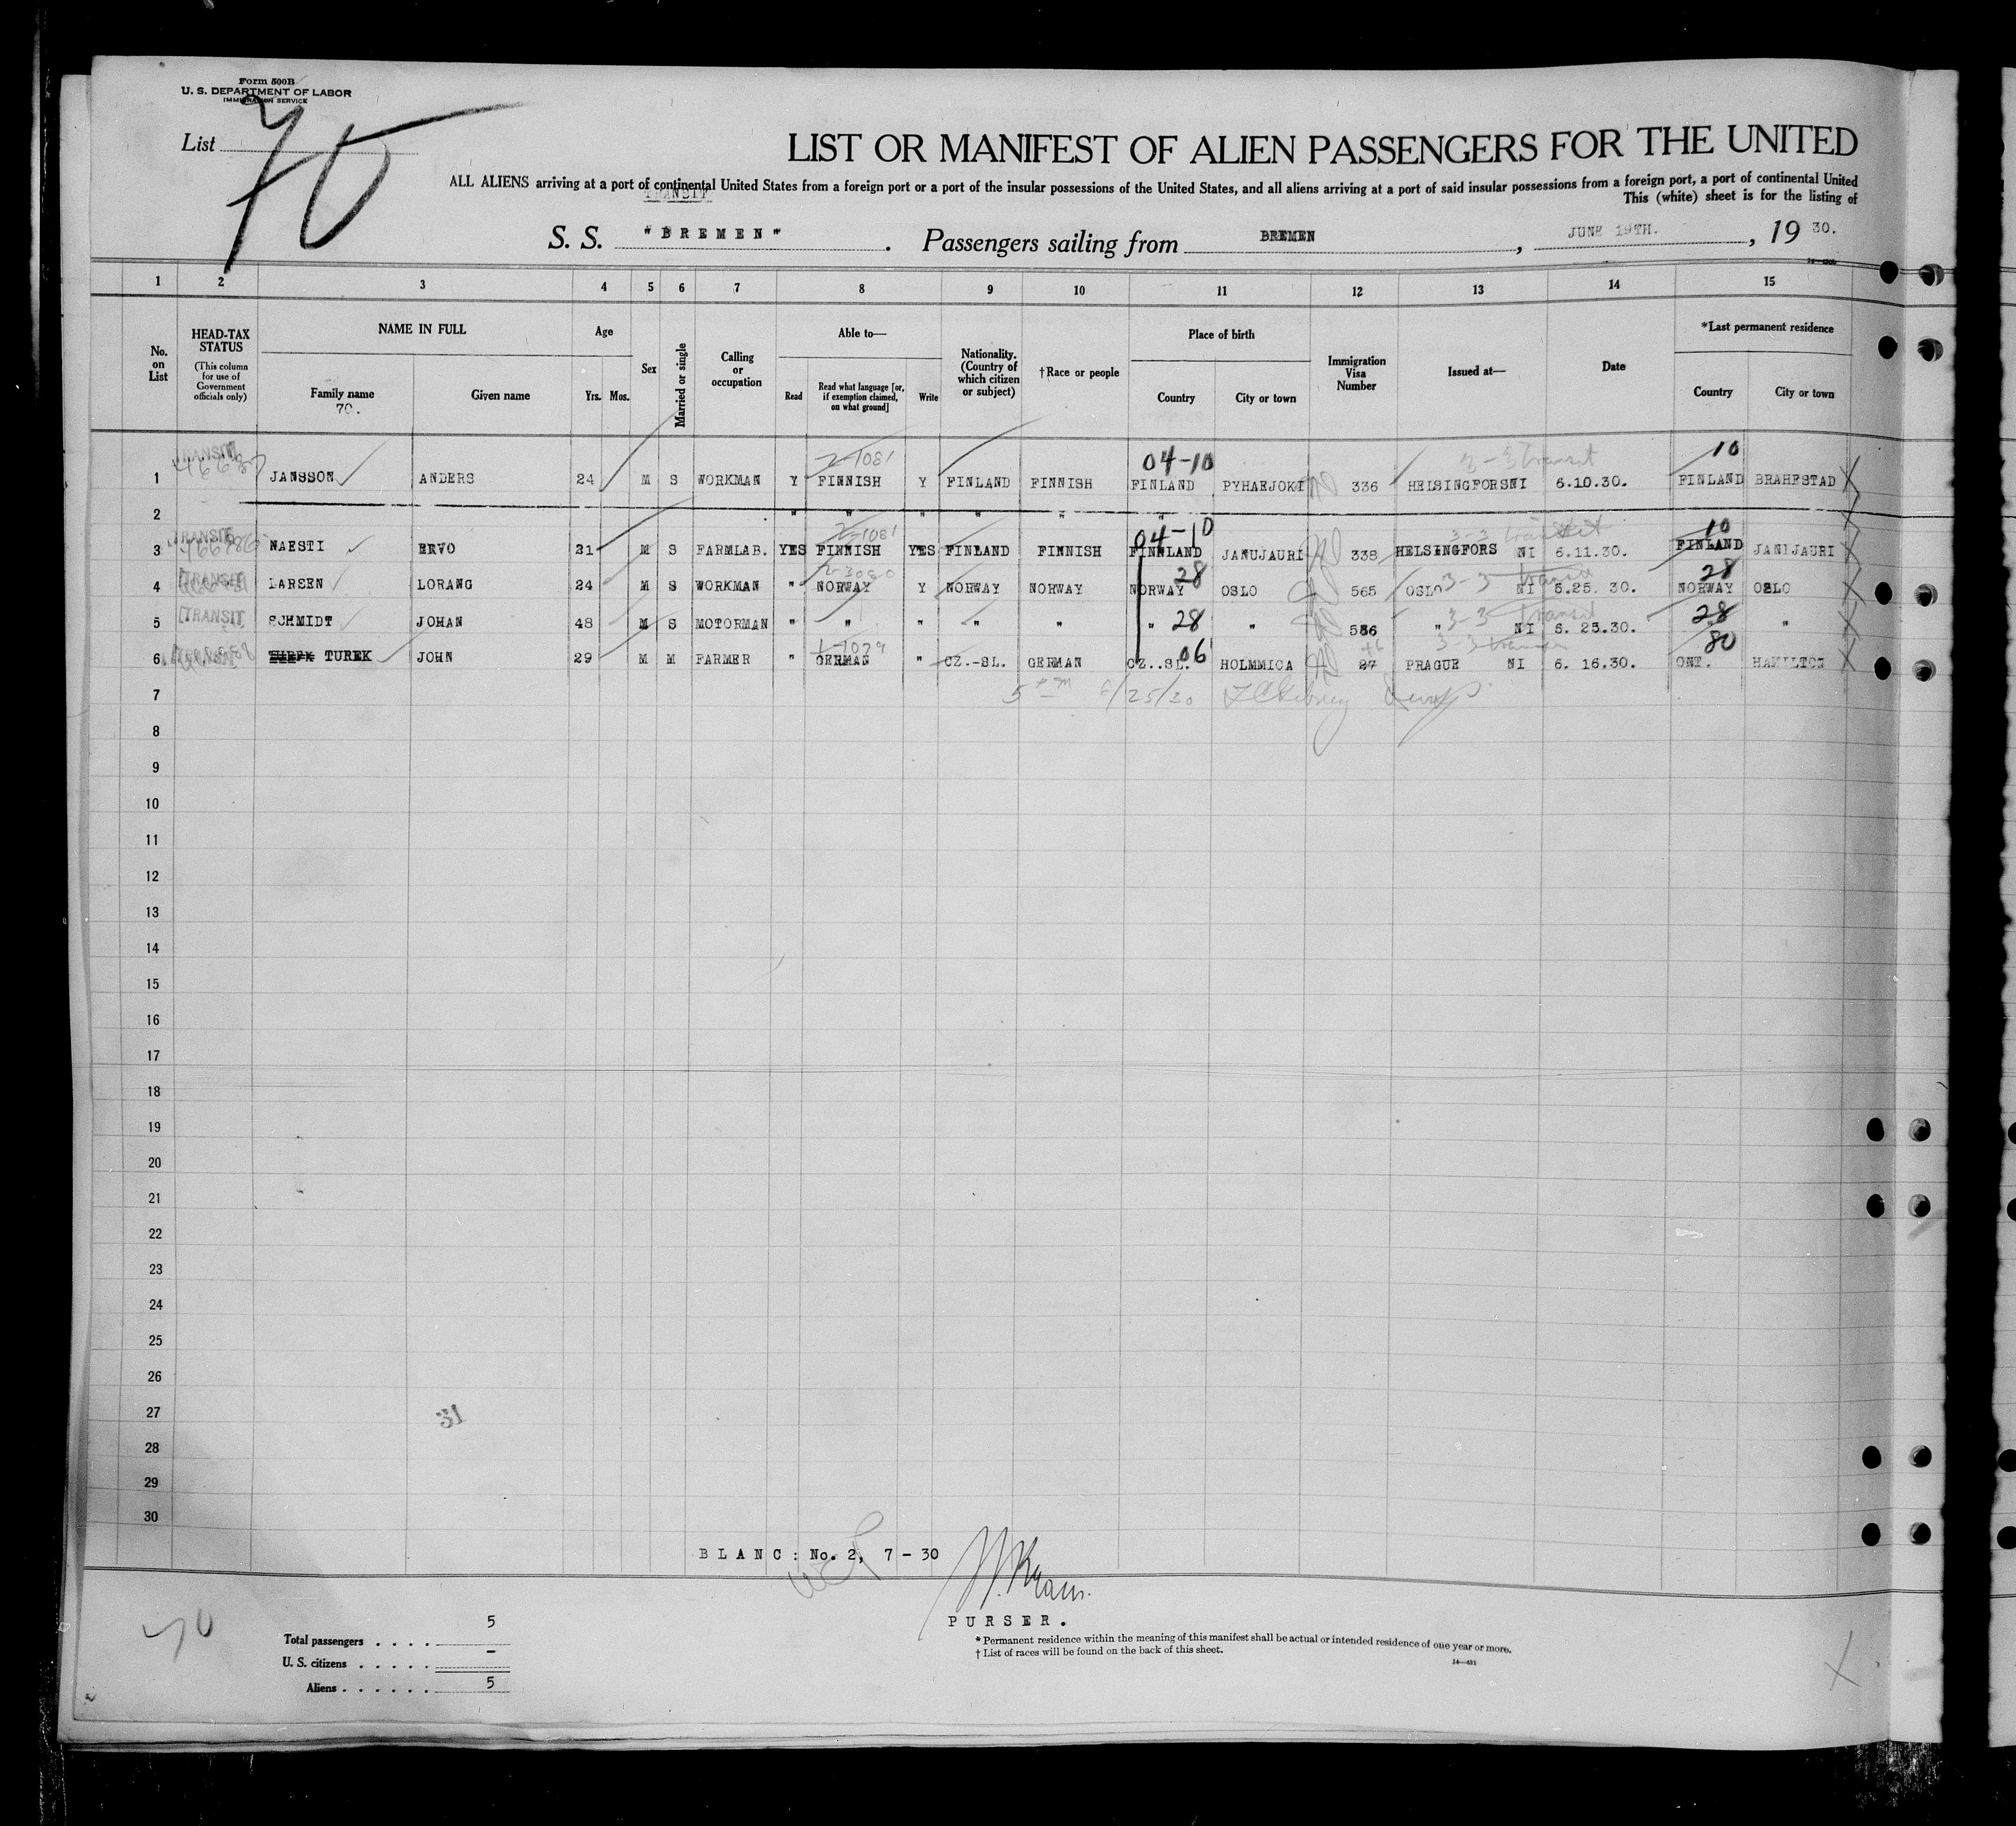 Form 500B
U. S. DEPARTMENT OF LABOR
IMMIGRATION SERVICE
List 70
LIST OR MANIFEST OF ALIEN PASSENGERS FOR THE UNITED
ALL ALIENS arriving at a port of continental United States from a foreign port or a port of the insular possessions of the United States, and all aliens arriving at a port of said insular possessions from a foreign port, a port of continental United
This (white) sheet is for the listing of
TRANSIT
S. S. "BREMEN". Passengers sailing from BREMEN, JUNE 19TH., 19 30.
1 2 3 4 5 6 7 8 9 10 11 12 13 14 15
No. on List
HEAD-TAX STATUS (This column for use of Government officials only)
NAME IN FULL Family name Given name
70.
Age Yrs. Mos.
Sex
Married or single
Calling or occupation
Able to— Read Read what language [or, if exemption claimed, on what ground] Write
Nationality. (Country of which citizen or subject)
†Race or people
Place of birth Country City or town
Immigration Visa Number
Issued at—
Date
*Last permanent residence Country City or town
TRANSIT 2-1081 04-10 3-3 transit 10
1 JANSSON ANDERS 24 M S WORKMAN Y FINNISH Y FINLAND FINNISH FINLAND PYHAEJOKI 336 HELSINGFORS NI 6.10.30. FINLAND BRAHESTAD
2 " " " " " "
TRANSIT 2-1081 04-10 3-3 transit 10
3 NAESTI ERVO 21 M S FARMLAB. YES FINNISH YES FINLAND FINNISH FINLAND JANUJAURI 338 HELSINGFORS NI 6.11.30. FINLAND JANIJAURI
TRANSIT 28 3-3 transit 28
4 LARSEN LORANG 24 M S WORKMAN " NORWAY Y NORWAY NORWAY NORWAY OSLO 565 OSLO NI 5.25. 30. NORWAY OSLO
TRANSIT 28 3-3 transit 28
5 SCHMIDT JOHAN 48 M S MOTORMAN " " " " " " " 566 " NI 5. 25.30. " "
1-1079 06 3-3 transit 80
6 TUREK JOHN 29 M M FARMER " GERMAN " CZ.-SL. GERMAN CZ..SL. HOLMMICA 27 PRAGUE NI 6. 16.30. ONT. HAMILTON
7 5 6/25/30
8
9
10
11
12
13
14
15
16
17
18
19
20
21
22
23
24
25
26
27
31
28
29
30
BLANC: No. 2, 7 - 30
PURSER.
70
5
Total passengers . . . .
U. S. citizens . . . . . –
Aliens . . . . . . 5
* Permanent residence within the meaning of this manifest shall be actual or intended residence of one year or more.
† List of races will be found on the back of this sheet.
14—431